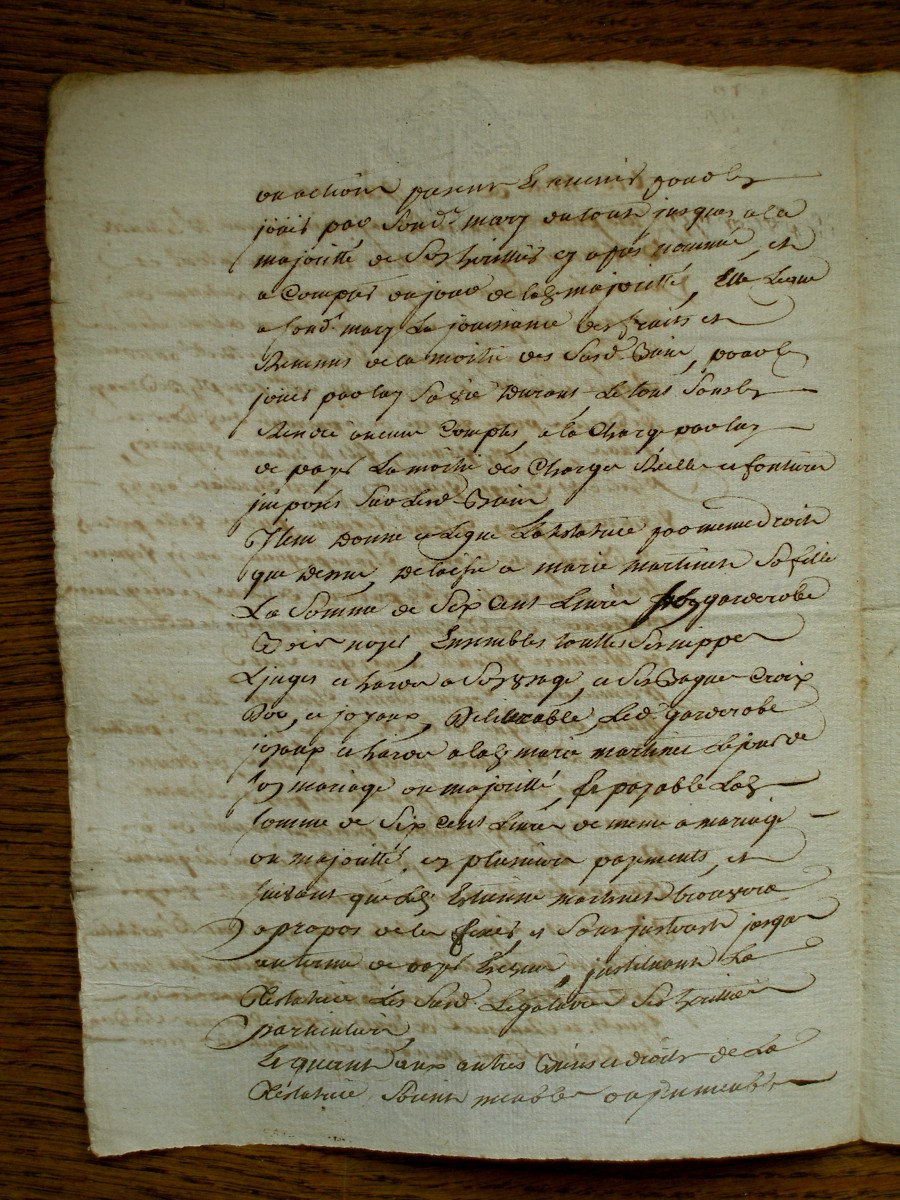 ou actions presents et avenir pour les
jouir par sond. mary du tout jusques a la
majorité de ses heritiers cy apres nommés, et
a compter du jour de lad. majorité, Elle Legue
a sond. mary La jouissance des fruits et
Revenus de la moitié des susd. Biens, pour
jouir par luy sa vie Durant Le tout sans
Rendre aucun Comptes, a la Charge par luy
de payer La moitié des Charges Réelles et foncieres
imposés sur lesd. Biens
Item Donne et Legue La testatrice par meme droit
que dessus, Delaisse a marie martinet sa fille
La somme de six cent Livres garderobe
Bois noyer, Ensembles touttes ses nippes
Linges et hardes a son usage, et ses Bagues Croix
Dor, et joyaux, Delivrable Led. garderobe
joyaux et hardes a lad. marie martinet Le jour de
son mariage ou majorité, Et payable Lad.
somme de six cent Livres de meme a mariage
ou majorité, en plusieurs payements, et
suivant que Led. Estienne martinet trouvera
a propos de les faire, et sans jusques
au terme de payer, instituant La
Testatrice Les susd. Legataires ses heritiers
particuliers
Et quant aux autres Biens et droits de La
Testatrice, soient meubles ou immeubles